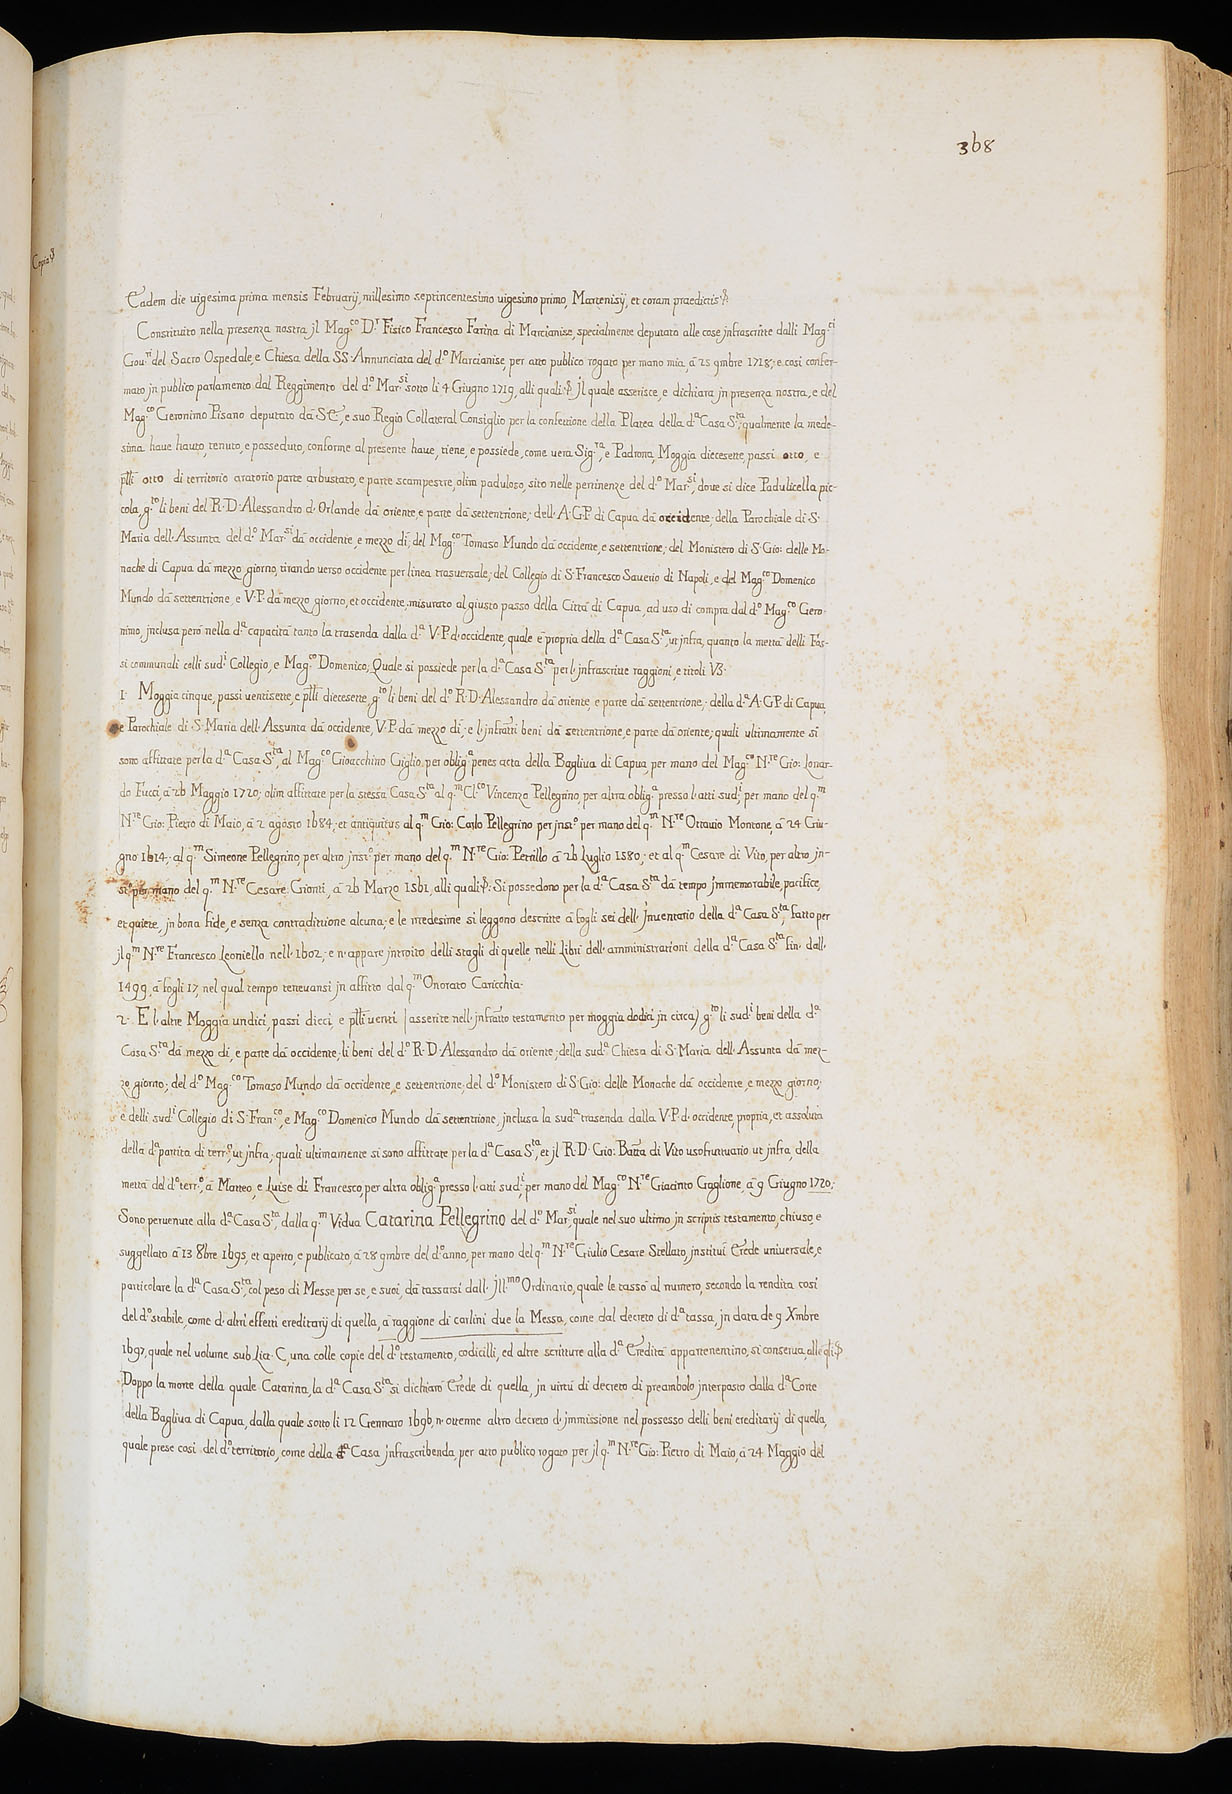 368
Copia
Eadem die vigesima prima mensis Februarij, millesimo septincentesimo vigesimo primo, Martenisij, et coram praedictis
Constituito nella presenza nostra jl Mag.co D.r Fisico Francesco Farina di Marcianise, specialmente deputato alle cose jnfrascritte dalli Mag.ci
Gou.ri del Sacro Ospedale, e Chiesa della SS. Annunciata del d.o Marcianise, per atto publico rogato per mano mia, à 25 9mbre 1718; e così confer-
mato jn publico parlamento dal Reggimento del d.o Mar.si sotto li 4 Giugno 1719, alli quali. Jl quale asserisce, e dichiara jn presenza nostra, e del
Mag.co Geronimo Pisano deputato dà S.E., e suo Regio Collateral Consiglio per la confettione della Platea della d.a Casa S.ta, qualmente la mede-
sima haue hauto, tenuto, e posseduto, conforme al presente haue, tiene, e possiede, come vera Sig.ra, e Padrona, Moggia diecesette, passi otto, e
p̃lli otto di territorio aratorio parte arbustato, e parte scampestre, olim paduloso, sito nelle pertinenze del d.o Mar.si, doue si dice Padulicella pic-
cola, g.to li beni del R. D. Alessandro d'Orlande dà oriente, e parte dà settentrione; dell'A.G.P. di Capua dà occidente; della Parochiale di S.
Maria dell'Assunta del d.o Mar.si dà occidente, e mezzo dì; del Mag.co Tomaso Mundo dà occidente, e settentrione; del Monistero di S. Gio: delle Mo-
nache di Capua dà mezzo giorno, tirando verso occidente per linea trasuersale; del Collegio di S. Francesco Sauerio di Napoli, e del Mag.co Domenico
Mundo dà settentrione, e V.P. dà mezzo giorno, et occidente; misurato al giusto passo della Città di Capua, ad uso di compra dal d.o Mag.co Gero-
nimo, jnclusa però nella d.a capacità tanto la trasenda dalla d.a V.P. d'occidente, quale è propria della d.a Casa S.ta, ut jnfra, quanto la mettà delli Fos-
si communali colli sud.i Collegio, e Mag.co Domenico; Quale si possiede per la d.a Casa S.ta per l'jnfrascritte raggioni, e titoli V3.
1. Moggia cinque, passi ventisette, e p̃lli diecesette, g.to li beni del d.o R. D. Alessandro dà oriente, e parte dà settentrione; della d.a A.G.P. di Capua,
e Parochiale di S. Maria dell'Assunta dà occidente, V.P. dà mezzo dì; e l'jnfratti beni dà settentrione, e parte dà oriente; quali ultimamente si
sono affittate per la d.a Casa S.ta, al Mag.co Gioacchino Giglio, per oblig.a penes acta della Bagliua di Capua, per mano del Mag.co N.re Gio: Lonar-
do Fucci, à 26 Maggio 1720; olim affittate per la stessa Casa S.ta al q.m Cl.co Vincenzo Pellegrino, per altra oblig.a presso l'atti sud.i per mano del q.m
N.re Gio: Pietro di Maio, à 2 agosto 1684; et antiquitus al q.m Gio: Carlo Pellegrino per jnst.o per mano del q.m N.re Ottauio Montone, à 24 Giu-
gno 1614; al q.m Simeone Pellegrino, per altro jnst.o per mano del q.m N.re Gio: Petrillo à 26 Luglio 1580; et al q.m Cesare di Vito, per altro jn-
st.o per mano del q.m N.re Cesare Gionti, à 26 Marzo 1561, alli quali. Si possedono per la d.a Casa S.ta dà tempo jmmemorabile, pacifice,
et quiete, jn bona fide, e senza contradittione alcuna; e le medesime si leggono descritte à fogli sei dell'jnuentario della d.a Casa S.ta, fatto per
jl q.m N.re Francesco Leoniello nell'1602; e n'appare jntroito delli stagli di quelle, nelli Libri dell'amministrationi della d.a Casa S.ta fin' dall'
1499, à fogli 17, nel qual tempo teneuansi jn affitto dal q.m Onorato Caricchia.
2. E l'altre Moggia undici, passi dieci, e p̃lli venti (asserite nell'jnfratto testamento per moggia dodici jn circa) g.to li sud.i beni della d.a
Casa S.ta dà mezzo dì, e parte dà occidente; li beni del d.o R. D. Alessandro dà oriente; della sud.a Chiesa di S. Maria dell'Assunta dà mez-
zo giorno; del d.o Mag.co Tomaso Mundo dà occidente, e settentrione; del d.o Monistero di S. Gio: delle Monache dà occidente, e mezzo giorno;
e delli sud.i Collegio di S. Fran.co, e Mag.co Domenico Mundo dà settentrione, jnclusa la sud.a trasenda dalla V.P. d'occidente, propria, et assoluta
della d.a partita di terr.o, ut jnfra; quali ultimamente si sono affittate per la d.a Casa S.ta, et jl R. D. Gio: Batta di Vito usofruttuario ut jnfra, della
mettà del d.o terr.o, à Matteo, e Luise di Francesco, per altra oblig.a presso l'atti sud.i, per mano del Mag.co N.re Giacinto Gaglione, à 9 Giugno 1720;
Sono peruenute alla d.a Casa S.ta, dalla q.m Vidua Catarina Pellegrino del d.o Mar.si, quale nel suo ultimo jn scriptis testamento, chiuso, e
suggellato à 13 8bre 1695, et aperto, e publicato, à 28 9mbre del d.o anno, per mano del q.m N.re Giulio Cesare Stellato, jnstituì Erede universale, e
particolare la d.a Casa S.ta, col peso di Messe per se, e suoi, dà tassarsi dall'jll.mo Ordinario, quale le tassò al numero, secondo la rendita così
del d.o stabile, come d'altri effetti ereditarij di quella, à raggione di carlini due la Messa, come dal decreto di d.a tassa, jn data de 9 Xmbre
1697, quale nel volume sub Lia. C, una colle copie del d.o testamento, codicilli, ed altre scritture alla d.a Eredità appartenentino, si conserva, alle qli
Doppo la morte della quale Catarina, la d.a Casa S.ta si dichiarò Erede di quella, jn virtù di decreto di preambolo jnterposto dalla d.a Corte
della Bagliua di Capua, dalla quale sotto li 12 Gennaro 1696, n'ottenne altro decreto d'jmmissione nel possesso delli beni ereditarij di quella,
quale prese così del d.o territorio, come della d.a Casa jnfrascribenda, per atto publico rogato per jl q.m N.re Gio: Pietro di Maio, à 24 Maggio del